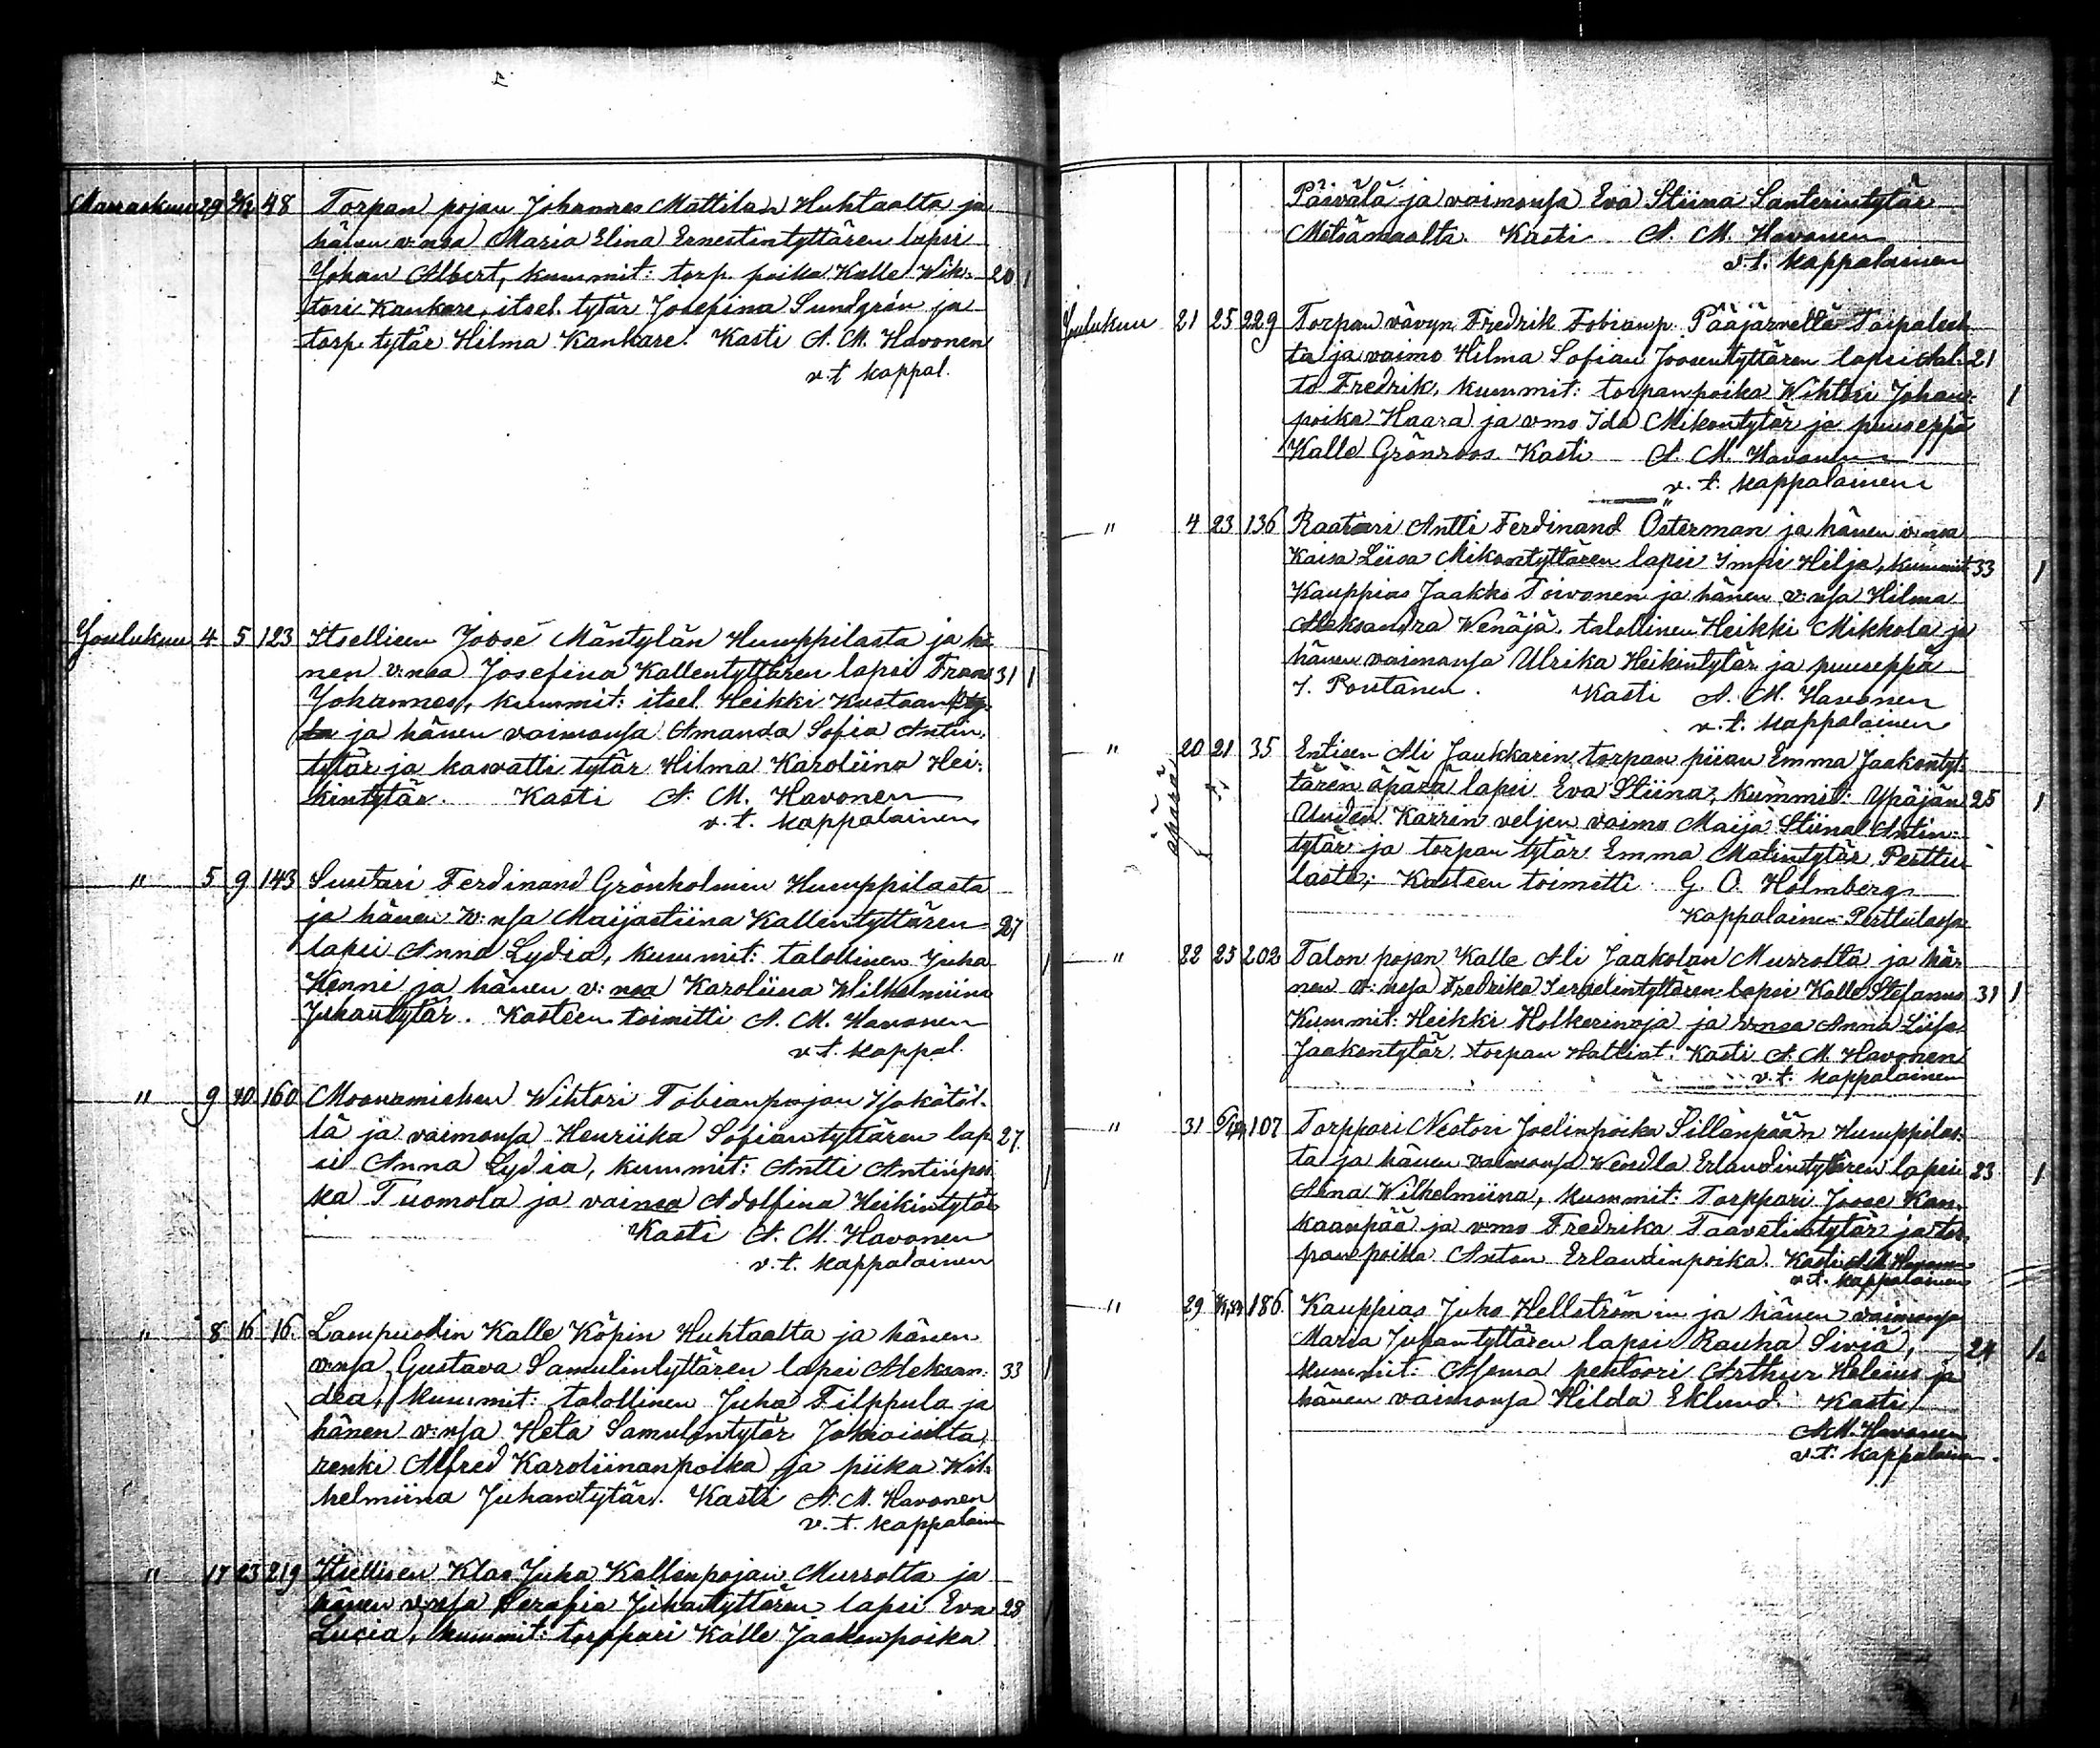 Marraskuu 29 48 Torpan pojan Johannes Mattilan Huhtaalta ja
hänen v:nsa Maria Elina Ernestintyttären lapsi
Johan Albert, kummit: torp. poika Kalle Wik- 20 1
tori Kankare, itsel. tytär Josefina Sundgrén ja
torp. tytär Hilma Kankare. Kasti A. M. Havonen
v. t. kappal.
Joulukuu 4 5 123 Itsellisen Joose Mäntylän Humppilasta ja hä-
nen v:nsa Josefina Kallentyttären lapsi Frans 31 1
Johannes, kummit: itsel. Heikki Kustaan
ja hänen vaimonsa Amanda Sofia Antin-
tytär ja kasvatti tytär Hilma Karoliina Hei-
kintytär. Kasti A. M. Havonen
v. t. kappalainen
" 5 9 143 Suutari Ferdinand Grönholmin Humppilasta
ja hänen v:nsa Maijastiina Kallentyttären 27
lapsi Anna Lydia, kummit: talollinen Juha 1
Henni ja hänen v:nsa Karoliina Wilhelmiina
Juhantytär. Kasteen toimitti A. M. Havonen
v. t. kappal.
" 9 10. 160 Wihtori Tobianpojan
tä ja vaimonsa Henriika Sofiantyttären lap- 27
si Anna Lydia, kummit: Antti Antinpoi- 1
ka Tuomola ja vaimonsa Adolfina Heikintytär
Kasti A. M. Havonen
v. t. kappalainen
" 8 16 16. Lampuodin Kalle Köpin Huhtaalta ja hänen
v:nsa Gustava Samulintyttären lapsi Aleksan- 33 1
dra, kummit: talollinen Juha Filppula ja
hänen v:nsa Heta Samulintytär Jokioisilta,
renki Alfred Karoliinanpoika ja piika Wil-
helmiina Juhantytär. Kasti A. M. Havonen
v. t. kappalain
" 17 23 219 Itsellisen Klas Juha Kallenpojan Murrolta ja
hänen v:nsa Serafia Juhantyttären lapsi Eva 28
Lucia, kummit: torppari Kalle Jaakonpoika
Päivälä ja vaimonsa Eva Stiina Santerintytär
Metsämaalta. Kasti A. M. Havonen
v. t. kappalainen
Joulukuu 21 25 229 Torpan vävyn Fredrik Tobianp. Pääjärvellä
ta ja vaimo Hilma Sofian Joosentyttären lapsi Aal- 21
to Fredrik, kummit: torpanpoika Wihtori Johan- 1
poika Haara ja vmo Ida Mikontytär ja puuseppä
Kalle Grönroos. Kasti A. M. Havonen
v. t. kappalainen
" 4 23 136 Raatari Antti Ferdinand Österman ja hänen v:nsa
Kaisa Liisa Mikontyttären lapsi Impi Hilja, kummit 33 1
Kauppias Jaakko Toivonen ja hänen v:nsa Hilma
Aleksandra Wenäjä, talollinen Heikki Mikkola ja
hänen vaimonsa Ulrika Heikintytär ja puuseppä
J. Pontanen. Kasti A. M. Havonen
v. t. kappalainen
" 20 21 35 Entisen Ali Jaukkarin torpan piian Emma Jaakontyt-
äpärä
tären äpärä lapsi Eva Stiina; kummit: Ypäjän 25 1
Uuden Kärrin veljen vaimo Maija Stiina Antin-
tytär ja torpan tytär Emma Matintytär Perttu-
lasta; Kasteen toimitti G. O. Holmberg
Kappalainen Perttulassa
" 22 25 202 Talon pojan Kalle Ali Jaakolan Murrolta ja hä-
nen v:nsa Fredrika Israelintyttären lapsi Kalle Stefanus 31 1
Kummit: Heikki Holkerinoja ja v:nsa Anna Liisa
Jaakontytär, torpan Kasti A. M. Havonen
v. t. kappalainen
" 31 107 Torppari Nestori Joelinpoika Sillänpään Humppilas-
ta ja hänen vaimonsa Wendla Erlandintyttären lapsi 23 1
Aina Wilhelmiina, kummit: Torppari Joose Kan-
kaanpää ja vmo Fredrika Taavetintytär ja tor-
panpoika Anton Erlandinpoika. Kasti A. M. Havonen
v. t. kappalainen
" 29 186. Kauppias Juho Hellströmin ja hänen vaimonsa
Maria Juhantyttären lapsi Rauha Siviä, 24 1
kummit: Asema Arthur Helenius ja
hänen vaimonsa Hilda Eklund. Kasti
A. M. Havonen
v. t. kappalainen.